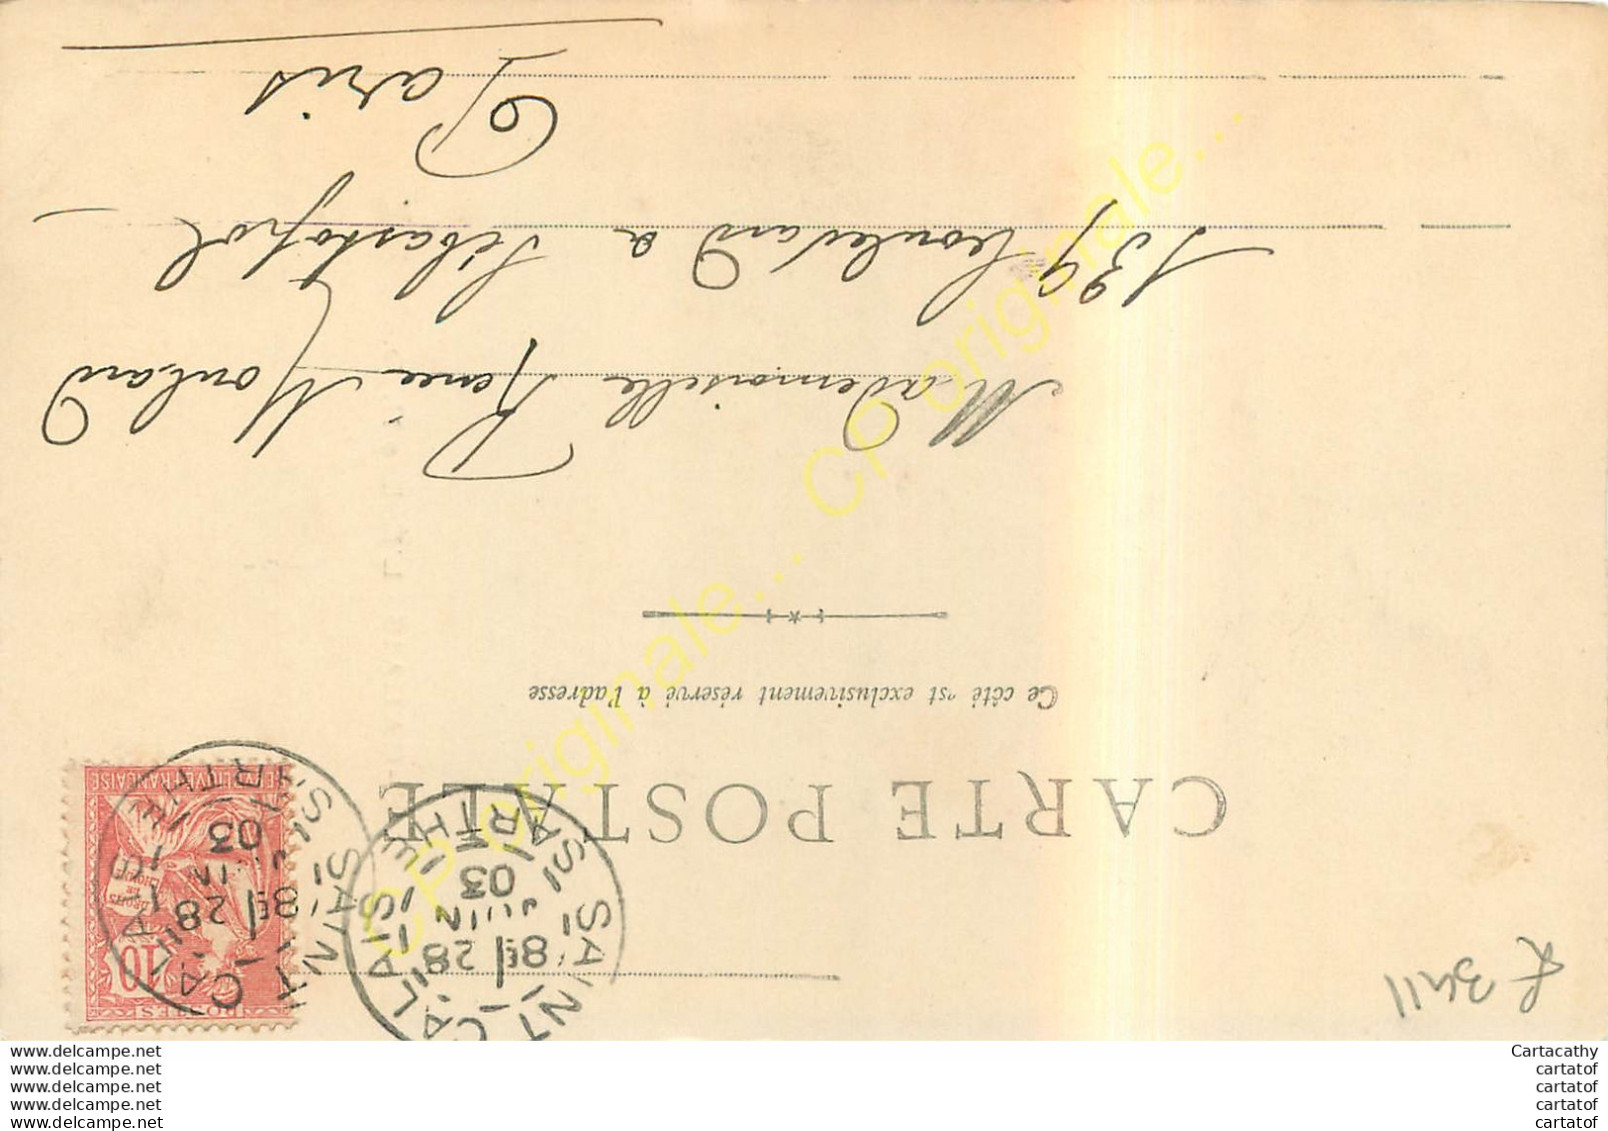 CARTE POSTALE
Ce côté est exclusivement réservé à l'adresse
Mademoiselle Renée Moulard
139 boulevard de Sébastopol
Paris
POSTES
10
DROITS
DE
L'HOMME
REPUBLIQUE FRANÇAISE
SAINT-CALAIS
8E 28
JUIN
03
SARTHE
SAINT-CALAIS
8E 28
JUIN
03
SARTHE
CP originale... CP originale... CP originale...
www.delcampe.net
www.delcampe.net
www.delcampe.net
www.delcampe.net
www.delcampe.net
Cartacathy
cartatof
cartatof
cartatof
cartatof